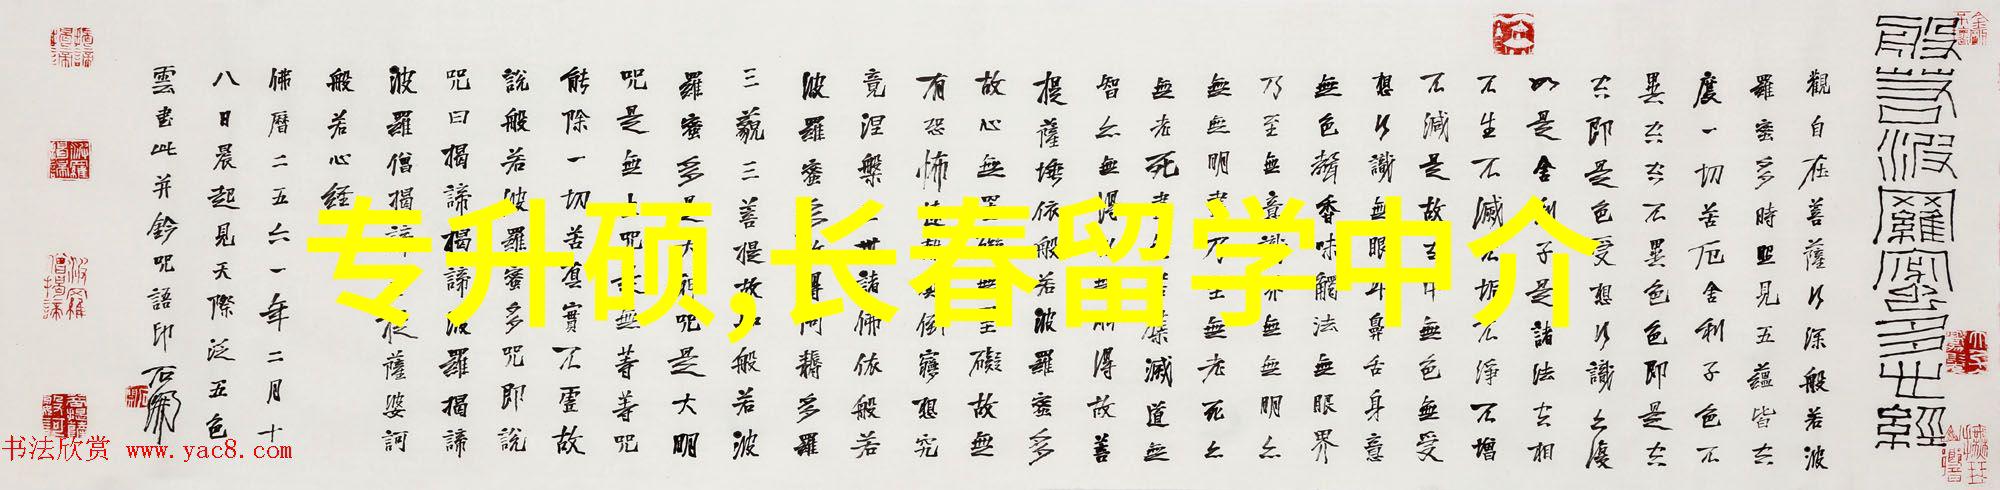 般若波羅蜜多心經
觀自在菩薩行深般若波
羅蜜多時照見五蘊皆空
度一切苦厄舍利子色不
異空空不異色色即是空
空即是色受想行識亦復
如是舍利子是諸法空相
不生不滅不垢不淨不增
不減是故空中無色無受
想行識無眼耳鼻舌身意
無色聲香味觸法無眼界
乃至無意識界無無明亦
無無明盡乃至無老死亦
無老死盡無苦集滅道無
智亦無得以無所得故菩
提薩埵依般若波羅蜜多
故心無罣礙無罣礙故無
有恐怖遠離顛倒夢想究
竟涅槃三世諸佛依般若
波羅蜜多故得阿耨多羅
三藐三菩提故知般若波
羅蜜多是大神咒是大明
咒是無上咒是無等等咒
能除一切苦真實不虛故
說般若波羅蜜多咒即說
咒曰揭諦揭諦波羅揭諦
波羅僧揭諦菩提薩婆訶
般若心経
佛曆二五六一年二月十
八日晨起見天際泛五色
雲書此并鈐咒語印
专升硕,长春留学中介
书法欣赏 www.yac8.com